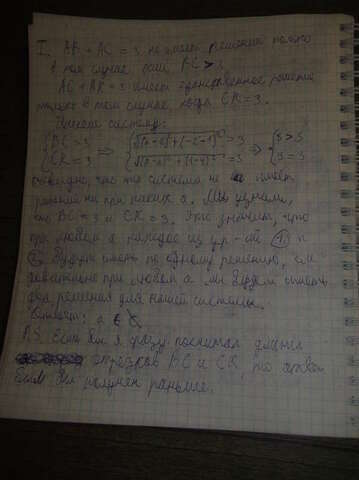 I. AB + AC = 3 не имеет решений только
в том случае если BC > 3.
AC + AK = 3 имеет единственное решение
только в том случае, когда CK = 3.
систему:
{ BC = 3 { CK = 3 ⇒ > 3 = 3 ⇒ { 3 > 3 3 = 3
Очевидно, что эта система не имеет
решений ни при каких a. Мы узнали,
что BC = 3 и CK = 3. Это значит, что
при любом a каждое из ур-ий ① и
② будут иметь по одному решению, сл
довательно при любом a мы будем иметь
два решения для нашей системы.
Ответ: a ∈
P.S. Если бы я сразу посчитал длины
отрезков BC и CK, то ответ
был бы получен раньше.